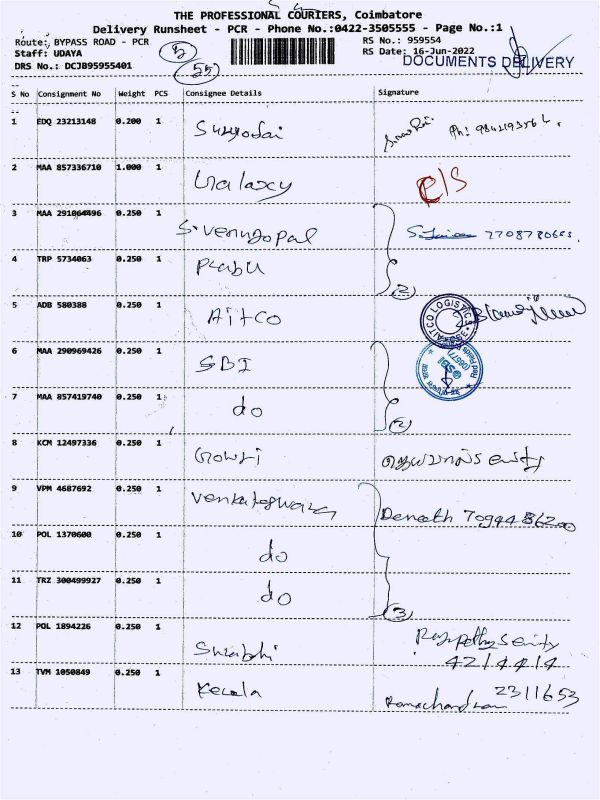 THE PROFESSIONAL COURIERS, Coimbatore
Delivery Runsheet - PCR - Phone No.:0422-3505555 - Page No.:1
Route: BYPASS ROAD - PCR
RS No.: 959554
Staff: UDAYA
RS Date: 16-Jun-2022
DRS No.: DCJB95955401
DOCUMENTS DELIVERY
S No Consignment No Weight PCS Consignee Details Signature
1 EDQ 23213148 0.200 1 Suryodai
2 MAA 857336710 1.000 1 Galaxy
3 MAA 291064496 0.250 1 S.Venugopal
4 TRP 5734063 0.250 1 Prabu (2)
5 ADB 580388 0.250 1 Aitco AITCO LOGISTICS
6 MAA 290969426 0.250 1 SBI SBI
7 MAA 857419740 0.250 1 do (2)
8 KCM 12497336 0.250 1 Gowri
9 VPM 4687692 0.250 1
10 POL 1370600 0.250 1 do
11 TRZ 300499927 0.250 1 do (3)
12 POL 1894226 0.250 1 Surabhi
4214414
13 TVM 1050849 0.250 1 Kerala Ramachandran 2311653